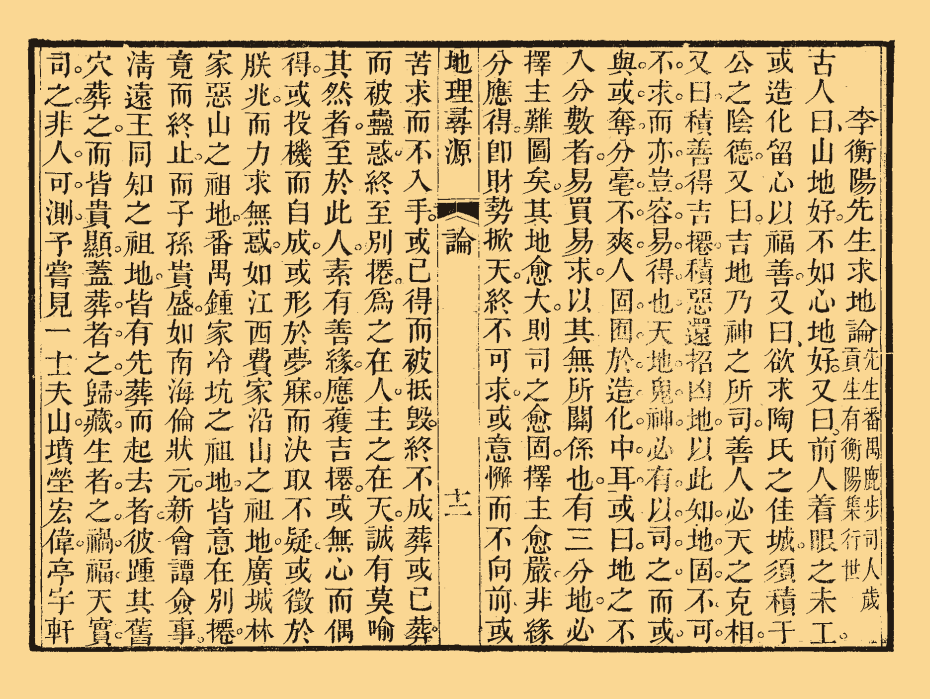 李衡陽先生求地論先生番禺鹿步司人歲貢生有衡陽集行世
古人曰山地好不如心地好又曰前人着眼之未工
或造化留心以福善又曰欲求陶氏之佳城須積于
公之陰德又曰吉地乃神之所司善人必天之克相
又曰積善得吉遷積惡還招凶地以此知地固不可
不求而亦豈容易得也天地鬼神必有以司之而或
與或奪分毫不爽人固囿於造化中耳或曰地之不
入分數者易買易求以其無所關係也有三分地必
擇主難圖矣其地愈大則司之愈固擇主愈嚴非緣
分應得卽財勢掀天終不可求或意懈而不向前或
地理尋源 論 十二
苦求而不入手或已得而被抵毀終不成葬或已葬
而被蠱惑終至別遷爲之在人主之在天誠有莫喻
其然者至於此人素有善緣應獲吉遷或無心而偶
得或投機而自成或形於夢寐而決取不疑或徵於
朕兆而力求無惑如江西費家沿山之祖地廣城林
家惡山之祖地番禺鍾家冷坑之祖地皆意在別遷
竟而終止而子孫貴盛如南海倫狀元新會譚僉事
淸遠王同知之祖地皆有先葬而起去者彼踵其舊
穴葬之而皆貴顯蓋葬者之歸藏生者之禍福天實
司之非人可測予嘗見一士夫山墳塋宏偉亭宇軒